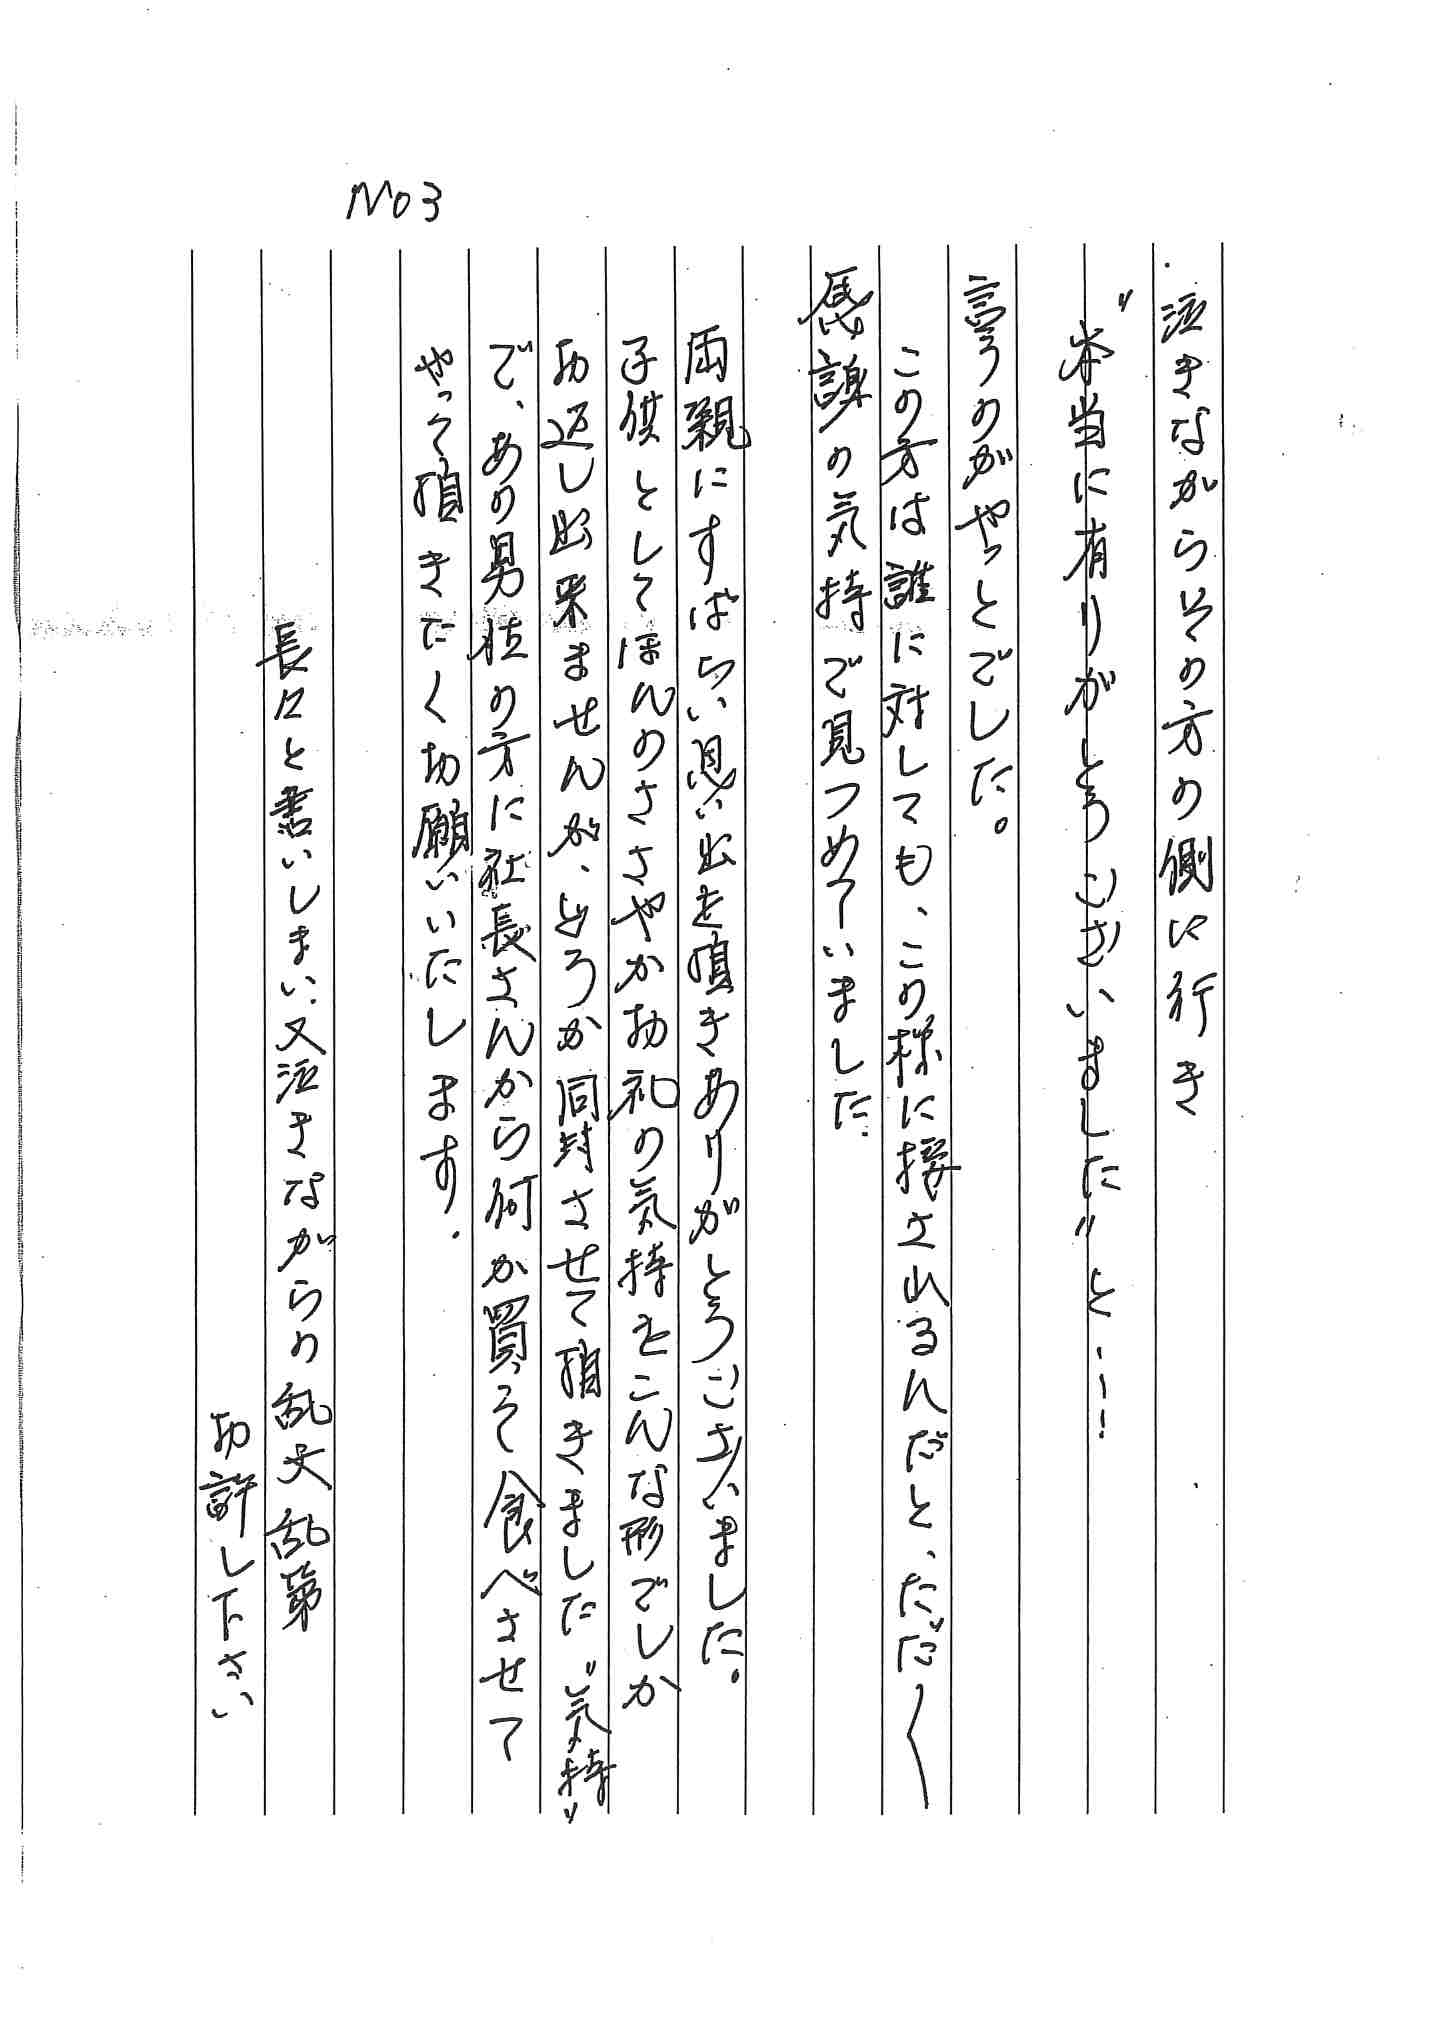 泣きながらその方の側に行き
"本当に有りがとうございました"と……
言うのがやっとでした。
この方は誰に対しても、この様に接されるんだと、ただ〱
感謝の気持で見つめていました.
両親にすばらい思い出を頂きありがとうございました。
子供としてほんのささやかお礼の気持をこんな形でしか
お返し出来ませんが、どうか同封させて頂きました"気持"
で、あの男性の方に社長さんから何か買って食べさせて
やって頂きたくお願いいたします.
NO3
長々と書いしまい、又泣きながらの乱文乱第
お許し下さい